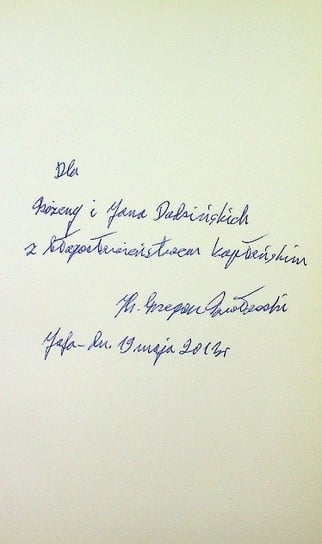 Dla
Bożeny i Jana Dudzińskich
z błogosławieństwem kapłańskim
Ks. Grzegorz
Jafa - dn. 19 maja 2013r